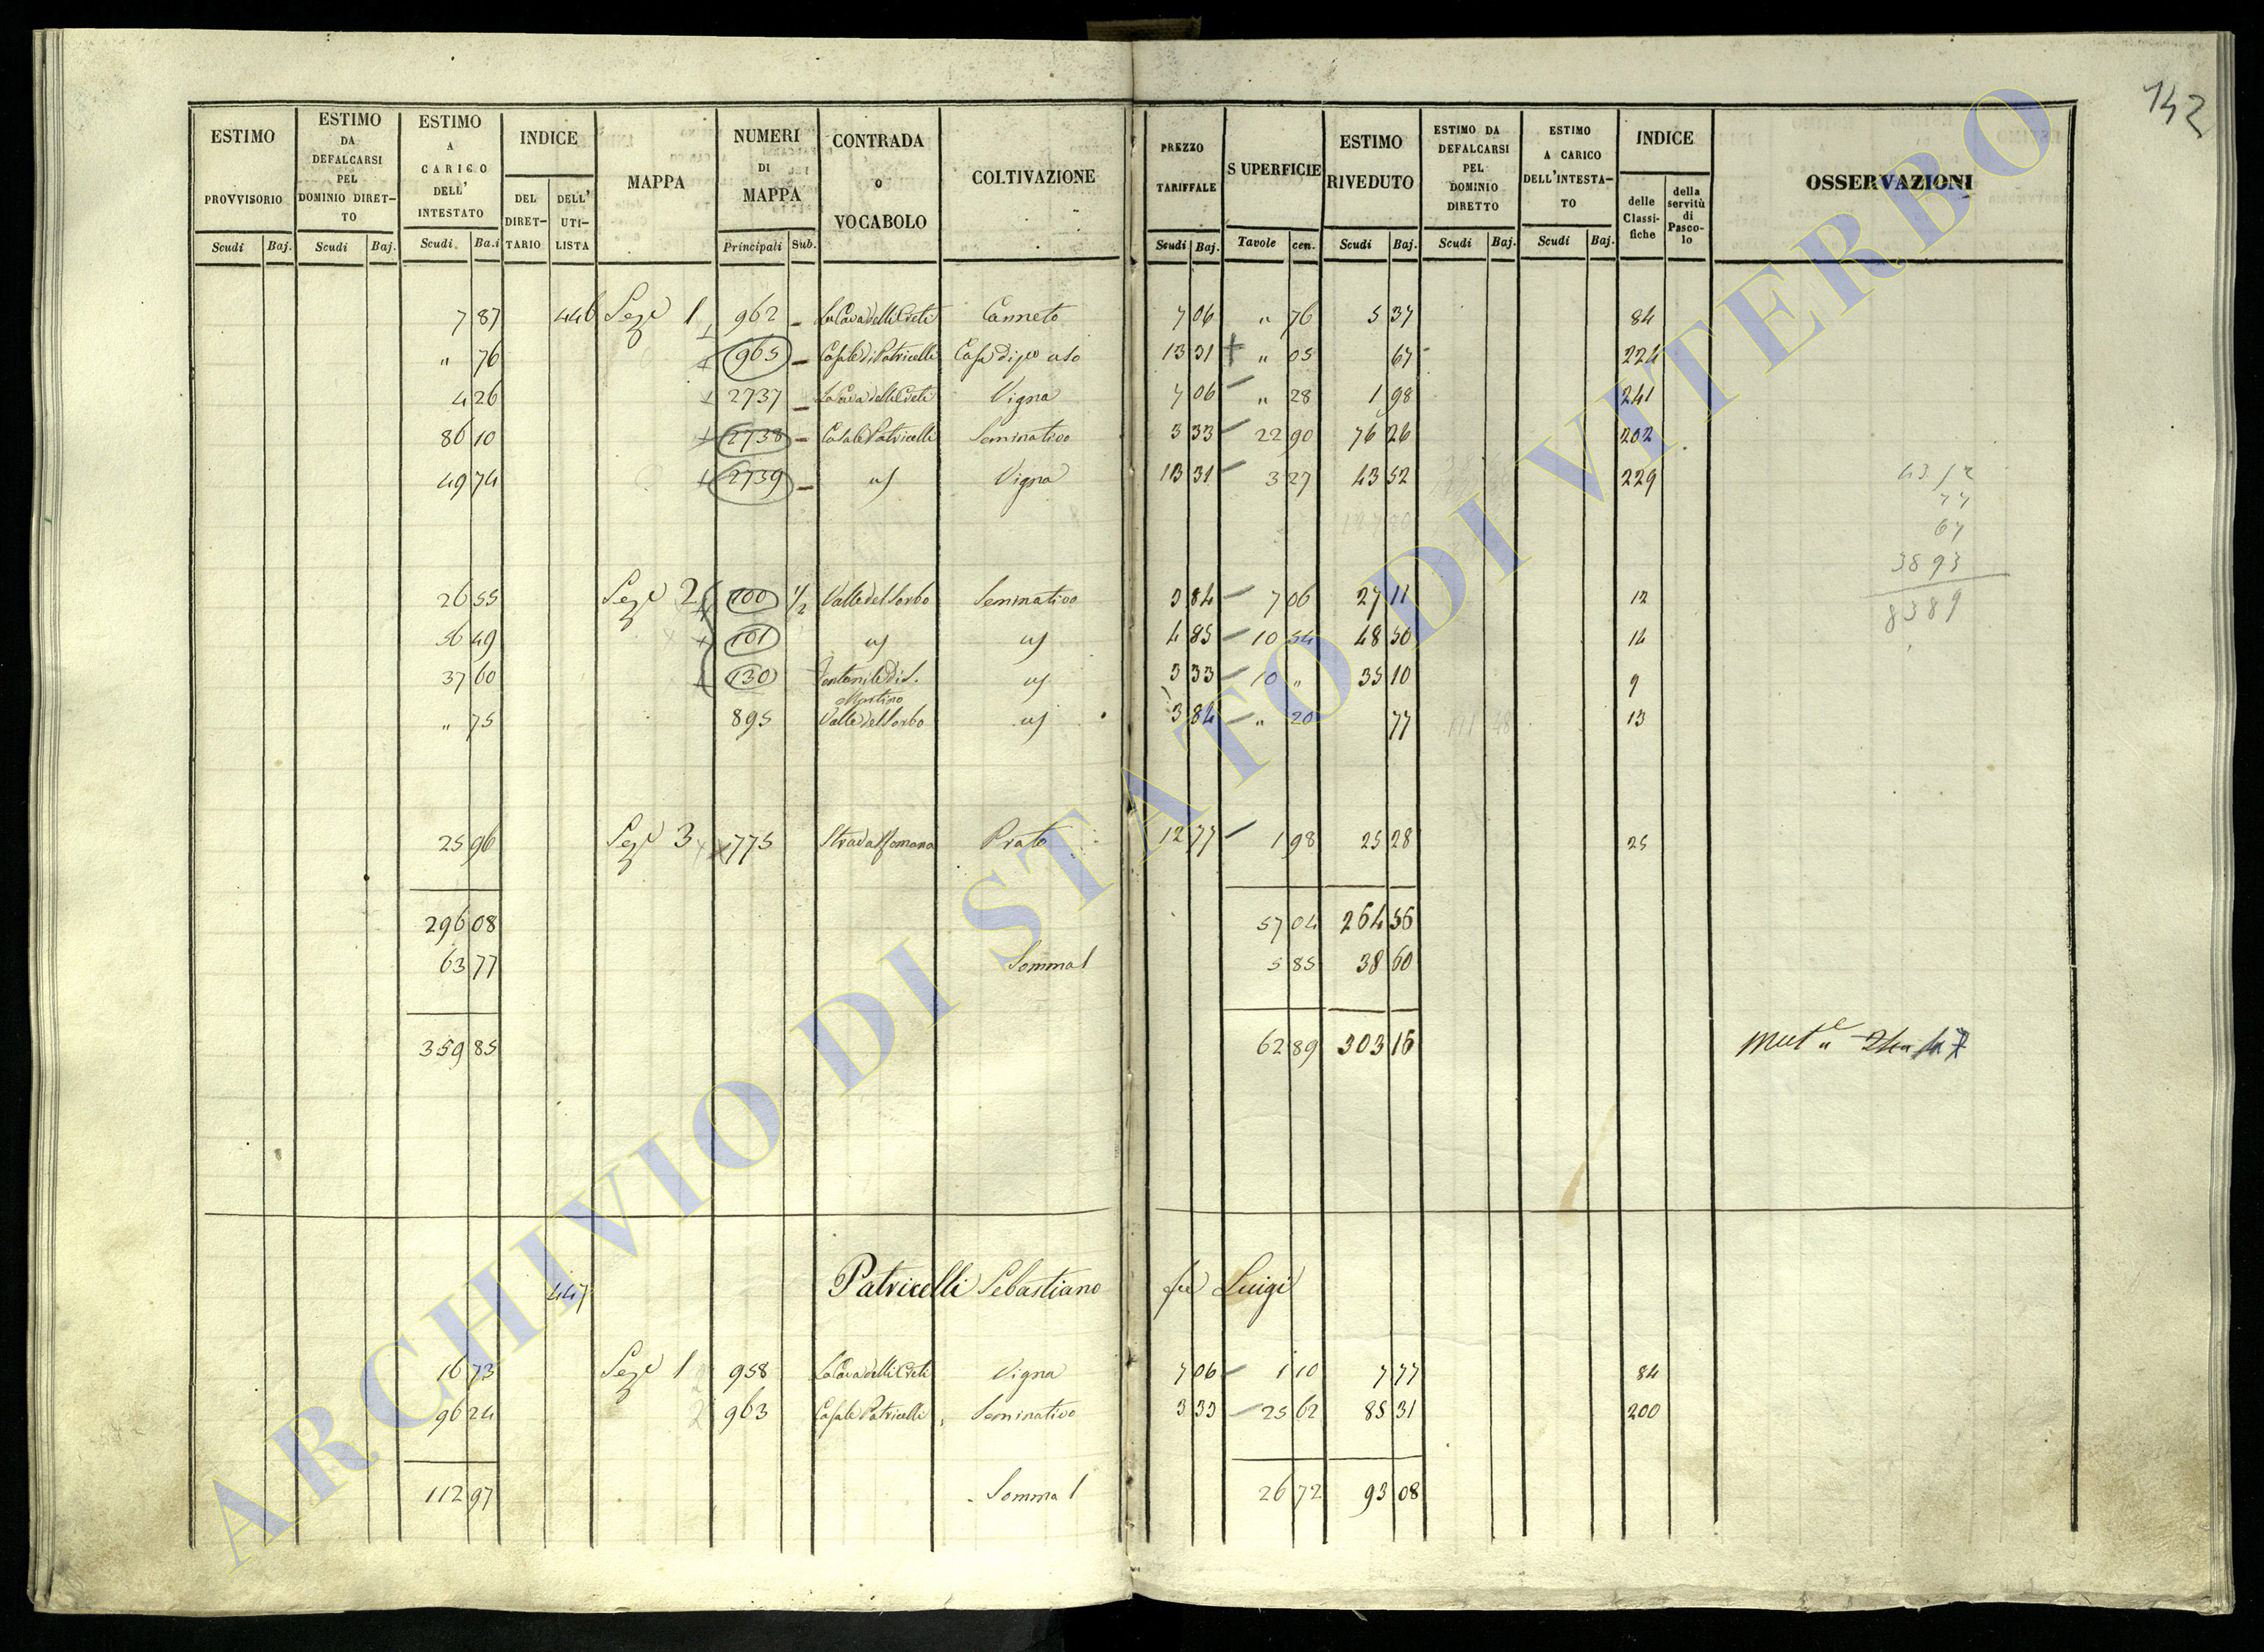 142
ESTIMO PROVVISORIO ESTIMO DA DEFALCARSI PEL DOMINIO DIRETTO ESTIMO A CARICO DELL' INTESTATO INDICE DEL DIRETTARIO DELL' UTILISTA MAPPA NUMERI DI MAPPA CONTRADA O VOCABOLO COLTIVAZIONE PREZZO TARIFFALE SUPERFICIE ESTIMO RIVEDUTO ESTIMO DA DEFALCARSI PEL DOMINIO DIRETTO ESTIMO A CARICO DELL'INTESTATO INDICE delle Classifiche della servitù di Pascolo OSSERVAZIONI
Scudi Baj. Scudi Baj. Scudi Ba.i Principali Sub. Scudi Baj. Tavole cen. Scudi Baj. Scudi Baj. Scudi Baj.
7 87 446 Seze 1 962 La Cava delli Creti Canneto 7 06 " 76 5 37 84
" 76 965 Casale di Patricelli Casa di pro uso 13 31 " 05 67 224
4 26 2737 La Cava delli Creti Vigna 7 06 " 28 1 98 241
86 10 2738 Casale Patricelli Seminativo 3 33 22 90 76 26 202
49 74 2739 Vigna 13 31 3 27 43 52 229
67
3593
8389
26 55 Seze 2 100 1/2 Valle del Sorbo Seminativo 3 84 7 06 27 11 12
56 49 101 4 85 10 54 48 50 14
37 60 130 Fontanile di S. Martino 3 33 10 " 35 10 9
" 75 895 Valle del Sorbo 3 84 " 20 77 13
25 96 Seze 3 775 Strada Romana Prato 12 77 1 98 25 28 25
296 08 57 04 264 56
63 77 Somma 5 85 38 60
359 85 62 89 303 16
447 Patricelli Sebastiano fu Luigi
16 73 Seze 1 958 La Cava delli Creti Vigna 7 06 1 10 7 77 84
96 24 963 Casale Patricelli Seminativo 3 33 25 62 85 31 200
112 97 Somma 26 72 93 08
ARCHIVIO DI STATO DI VITERBO